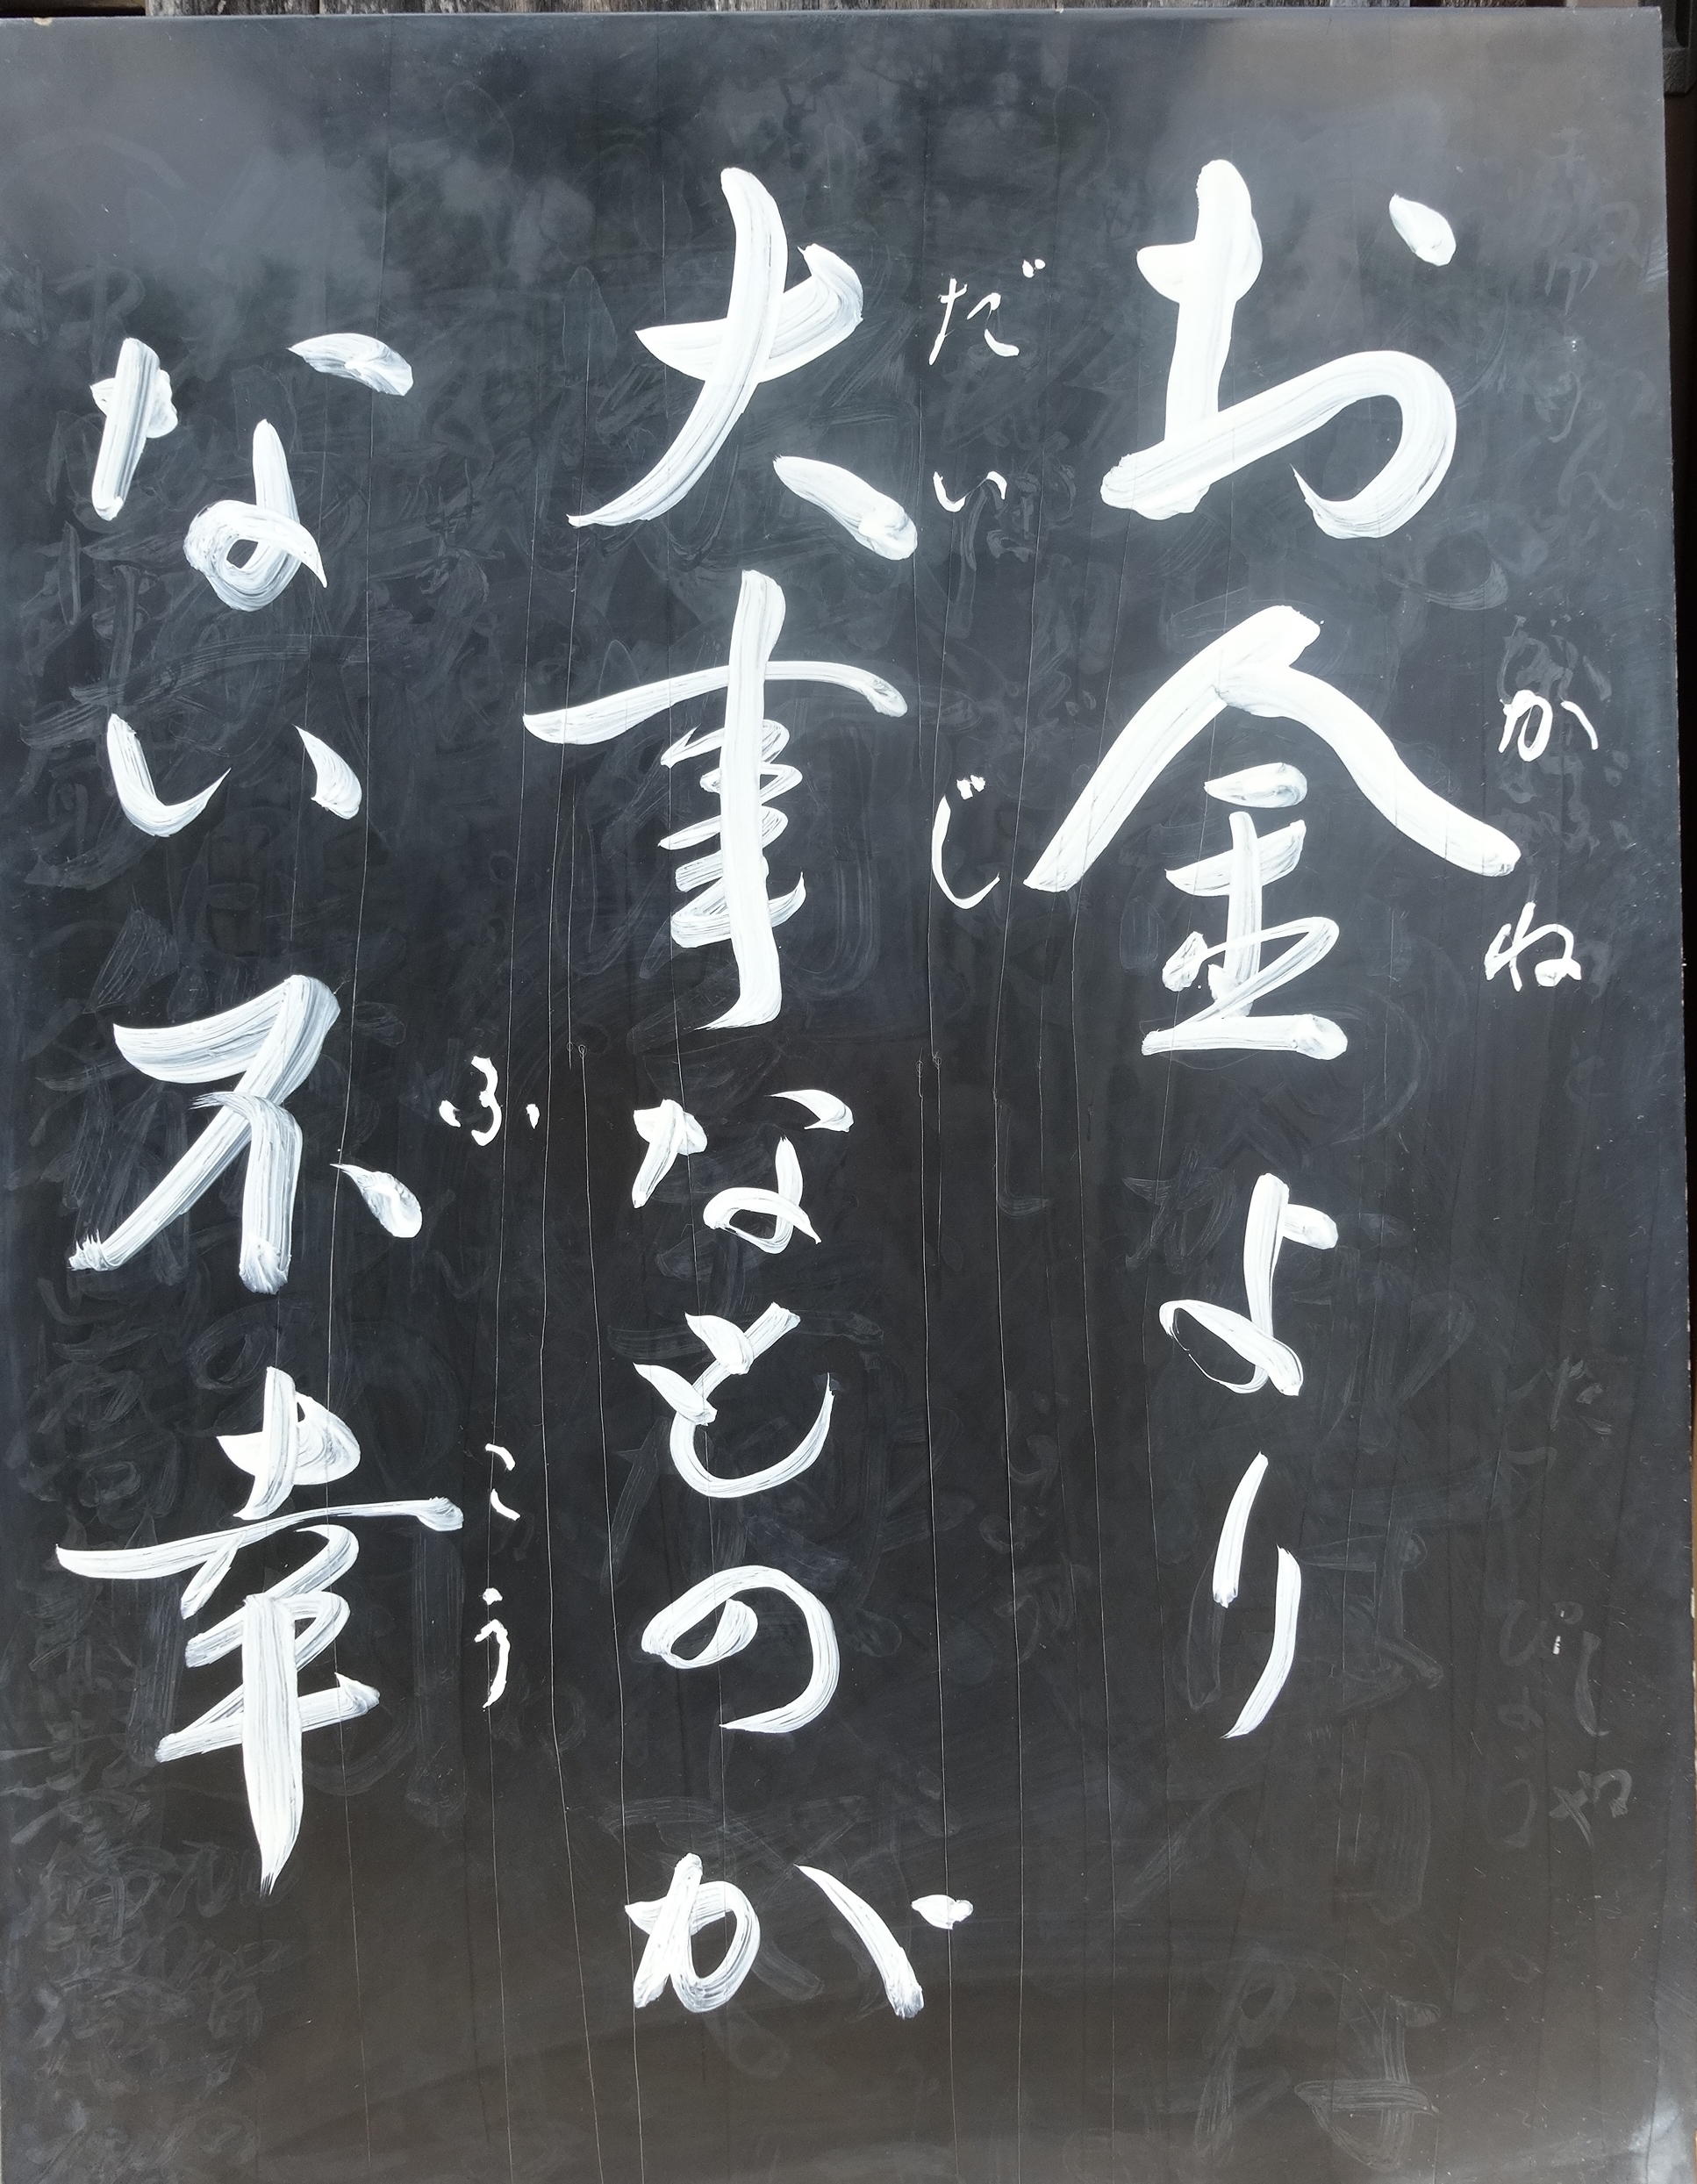 お金より
かね
大事なものが
だいじ
ない不幸
ふこう